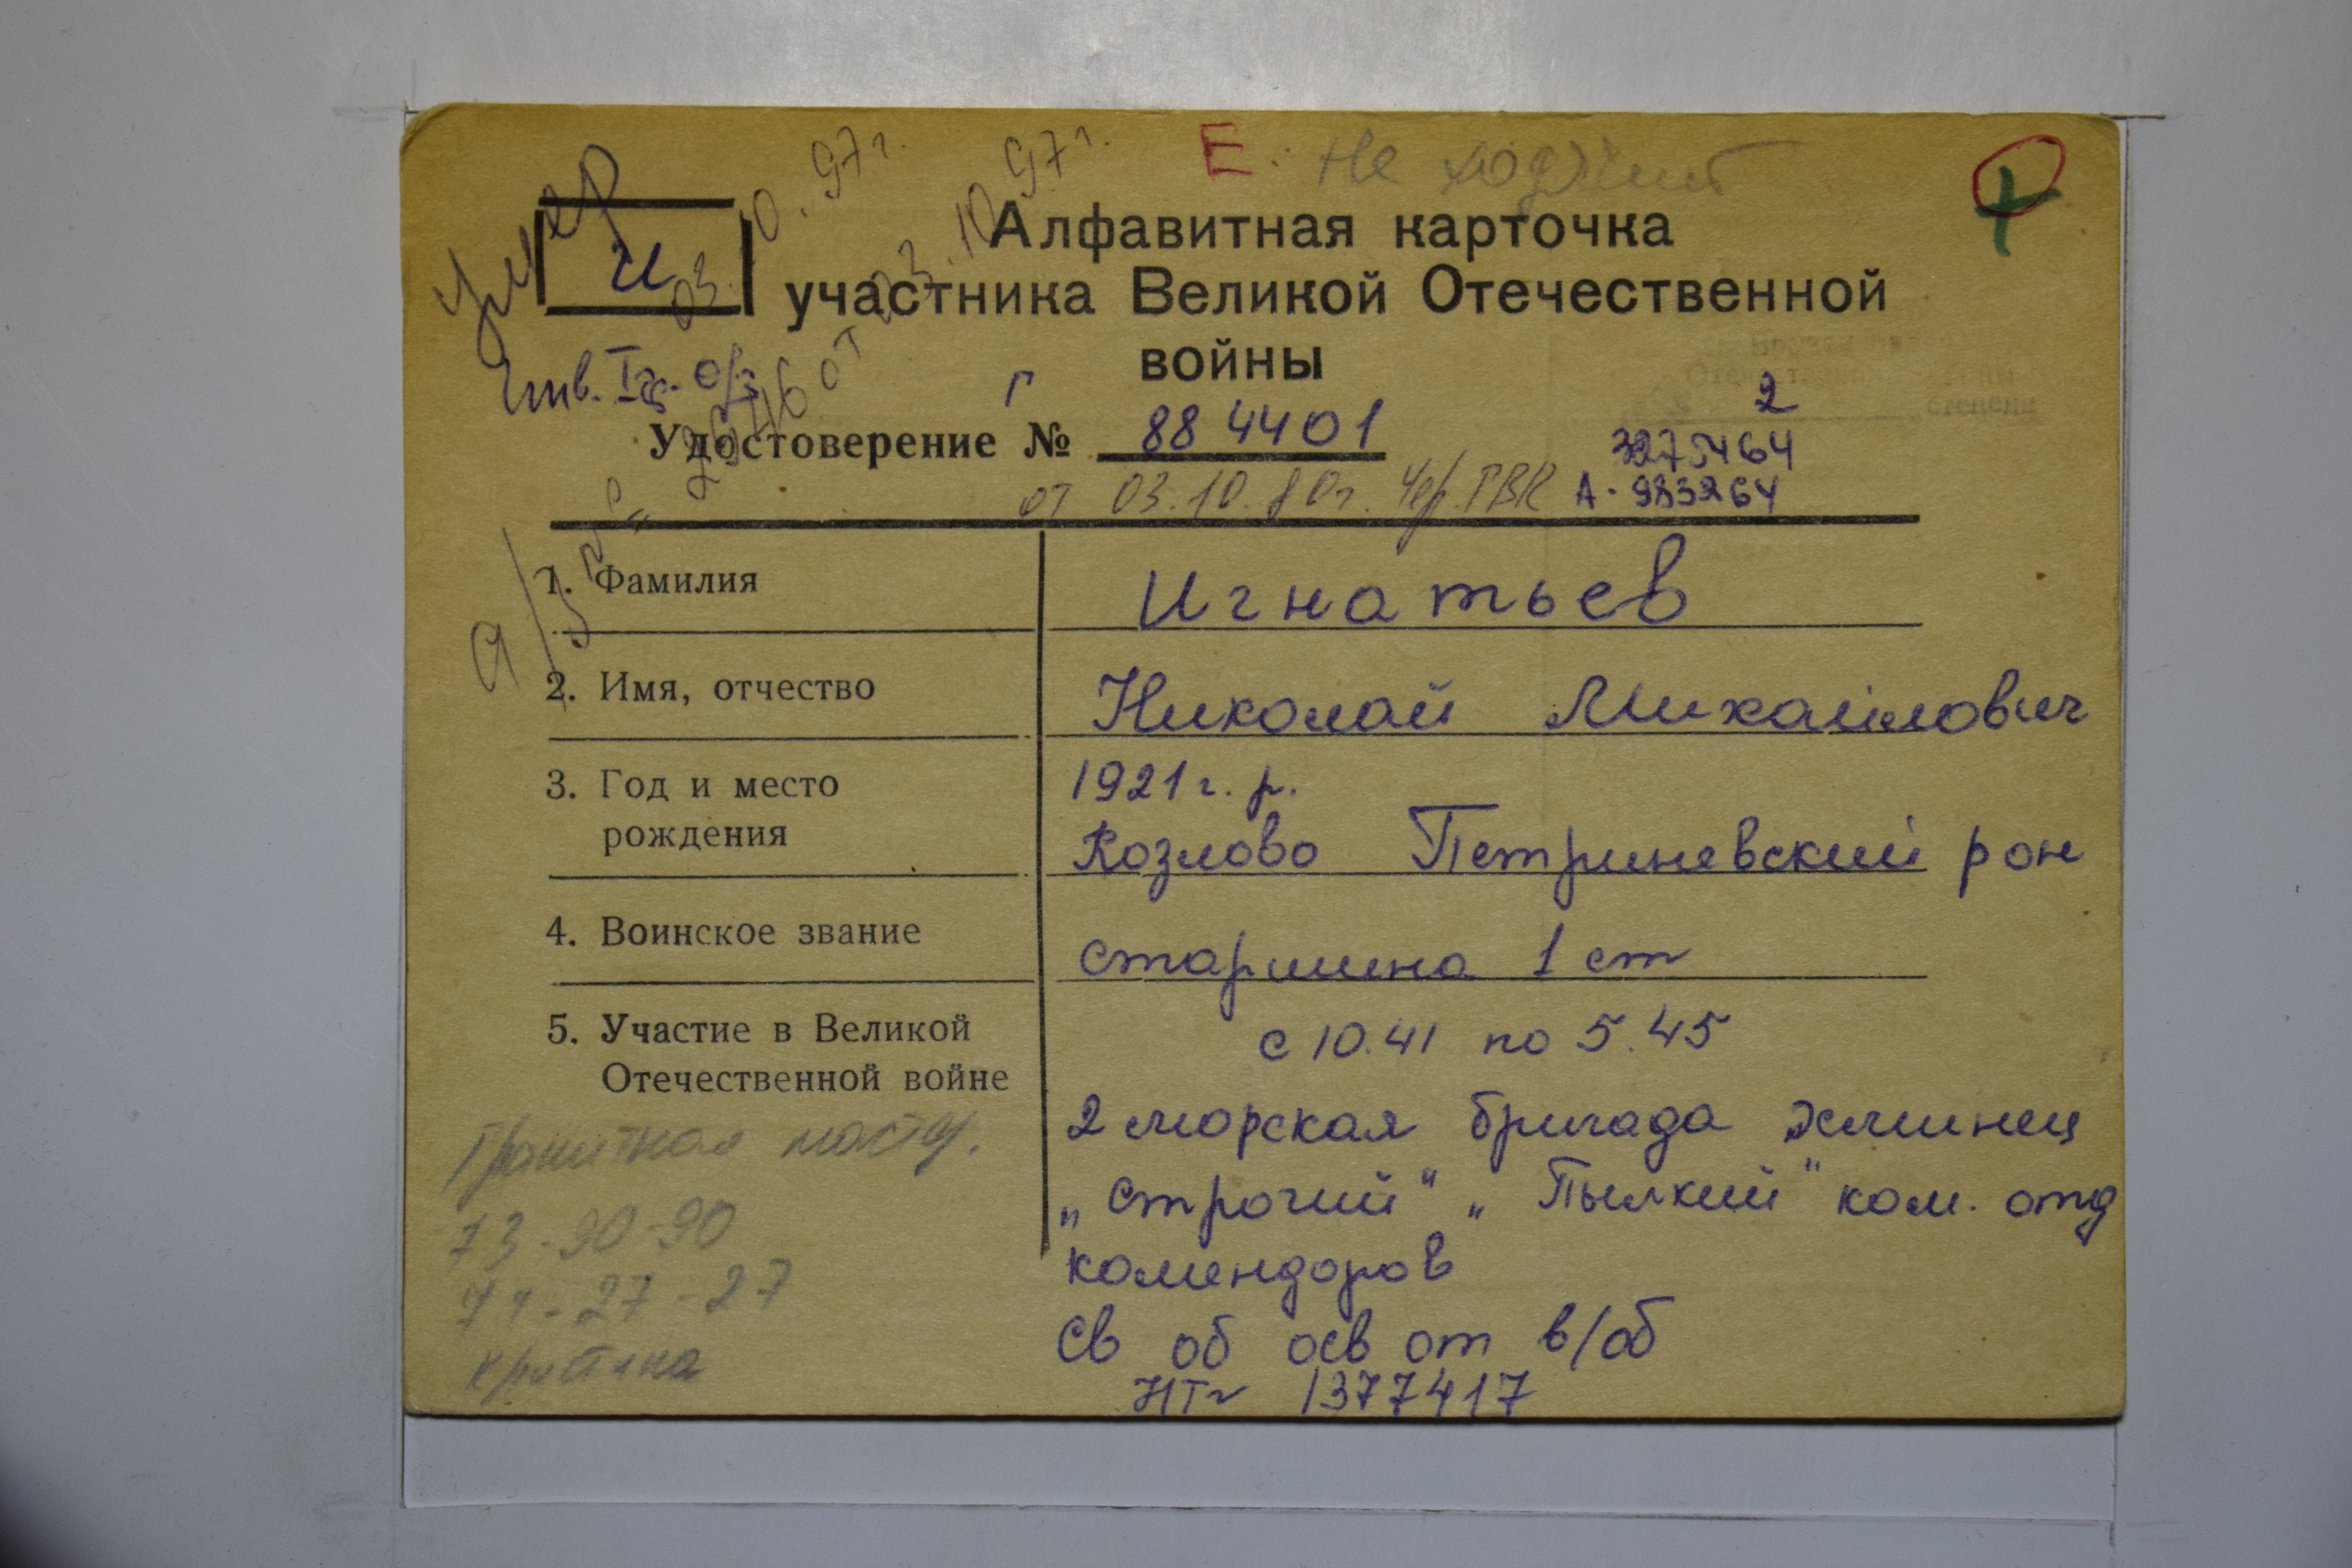 Е. Не ходячий
умер 03.10.97г.
и
Алфавитная карточка
участника Великой Отечественной
войны
Инв. I гр. о/з
а/з № 26460т 03.10.97г.
Г
Удостоверение № 884401
2
3275464
от 03.10.80г. Чер. ГВК А-983264
1. Фамилия
Игнатьев
2. Имя, отчество
Николай Михайлович
3. Год и место
рождения
1921 г. р.
Козлово Петриневский рон
4. Воинское звание
старшина 1 ст
5. Участие в Великой
Отечественной войне
с 10.41 по 5.45
2 морская бригада эсминец
„Строгий" „Пылкий" ком. отд
комендоров
Св об осв от в/об
НТ № 1377417
Гранитная маст.
73-90-90
71-27-27